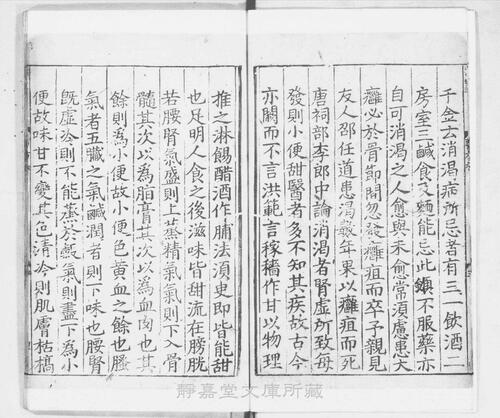 千金云消渴病所忌者有三一飲酒二
房室三鹹食及麵能忌此雖不服藥亦
自可消渴之人愈與未愈常須慮患大
癰必於骨節間忽發癰疽而卒予親見
友人邵任道患渴數年果以癰疽而死
唐祠部李郎中論消渴者腎虛所致每
發則小便甜醫者多不知其疾故古今
亦闕而不言洪範言稼穡作甘以物理
推之淋餳醋酒作脯法須臾即皆能甜
也足明人食之後滋味皆甜流在膀胱
若腰腎氣盛則上蒸精氣氣則下入骨
髓其次以為脂膏其次以為血肉也其
餘則為小便故小便色黃血之餘也臊
氣者五臟之氣鹹潤者則下味也腰腎
既虛冷則不能蒸於穀氣則盡下為小
便故味甘不變其色清冷則肌膚枯槁
靜嘉堂文庫所藏